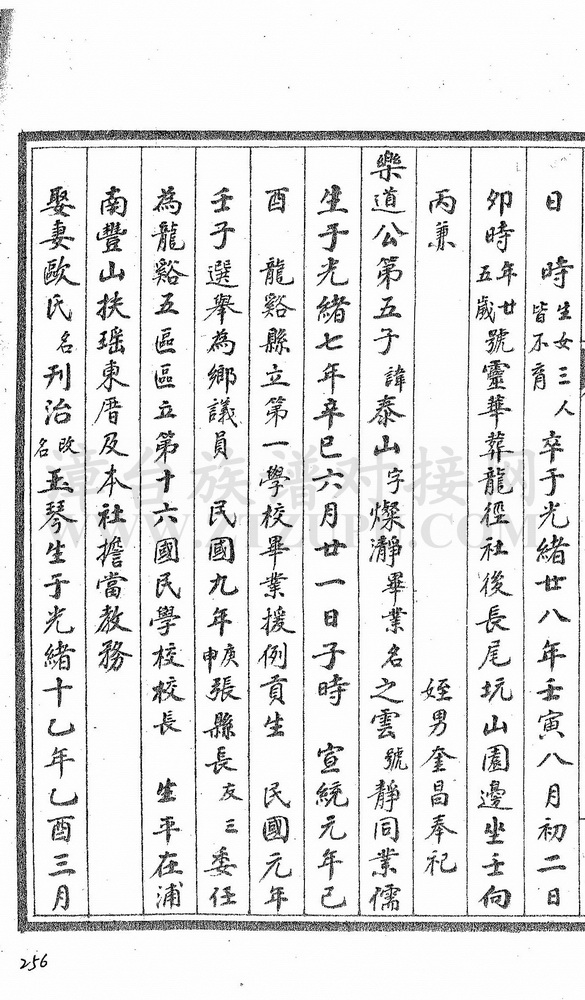 日　時生女三人皆不育卒于光緒廿八年壬寅八月初二日
卯時年廿五歲號靈華葬龍徑社後長尾坑山園邊坐壬向
丙兼　姪男奎昌奉祀
樂道公第五子諱泰山字燦瀞畢業名之雲號靜同業儒
生于光緒七年辛巳六月廿一日子時　宣統元年己
酉　龍谿縣立第一學校畢業援例貢生　民國元年
壬子選舉為鄉議員　民國九年庚申張縣長友三委任
為龍谿五區區立第十六國民學校校長　生平在浦
南豐山扶瑶東厝及本社擔當教務
娶妻歐氏名刊治改名玉琴生于光緒十乙年乙酉三月
漳台族谱对接网
256